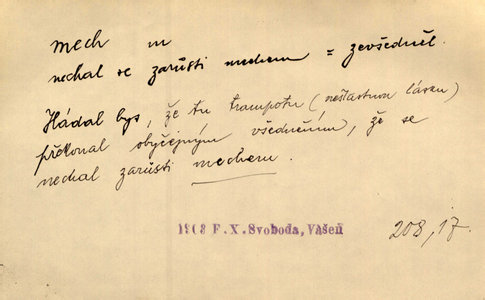 mech m
nechal se zarůsti mechem = zevšedněl.
Hádal bys, že tu trampotu (nešťastnou lásku)
překonal obyčejným všedněním, že se
nechal zarůsti mechem.
1908 F.X.Svoboda, Vášeň
208, 17.